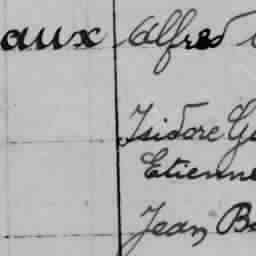 aux Alfred
Isidore
Etienne
Jean